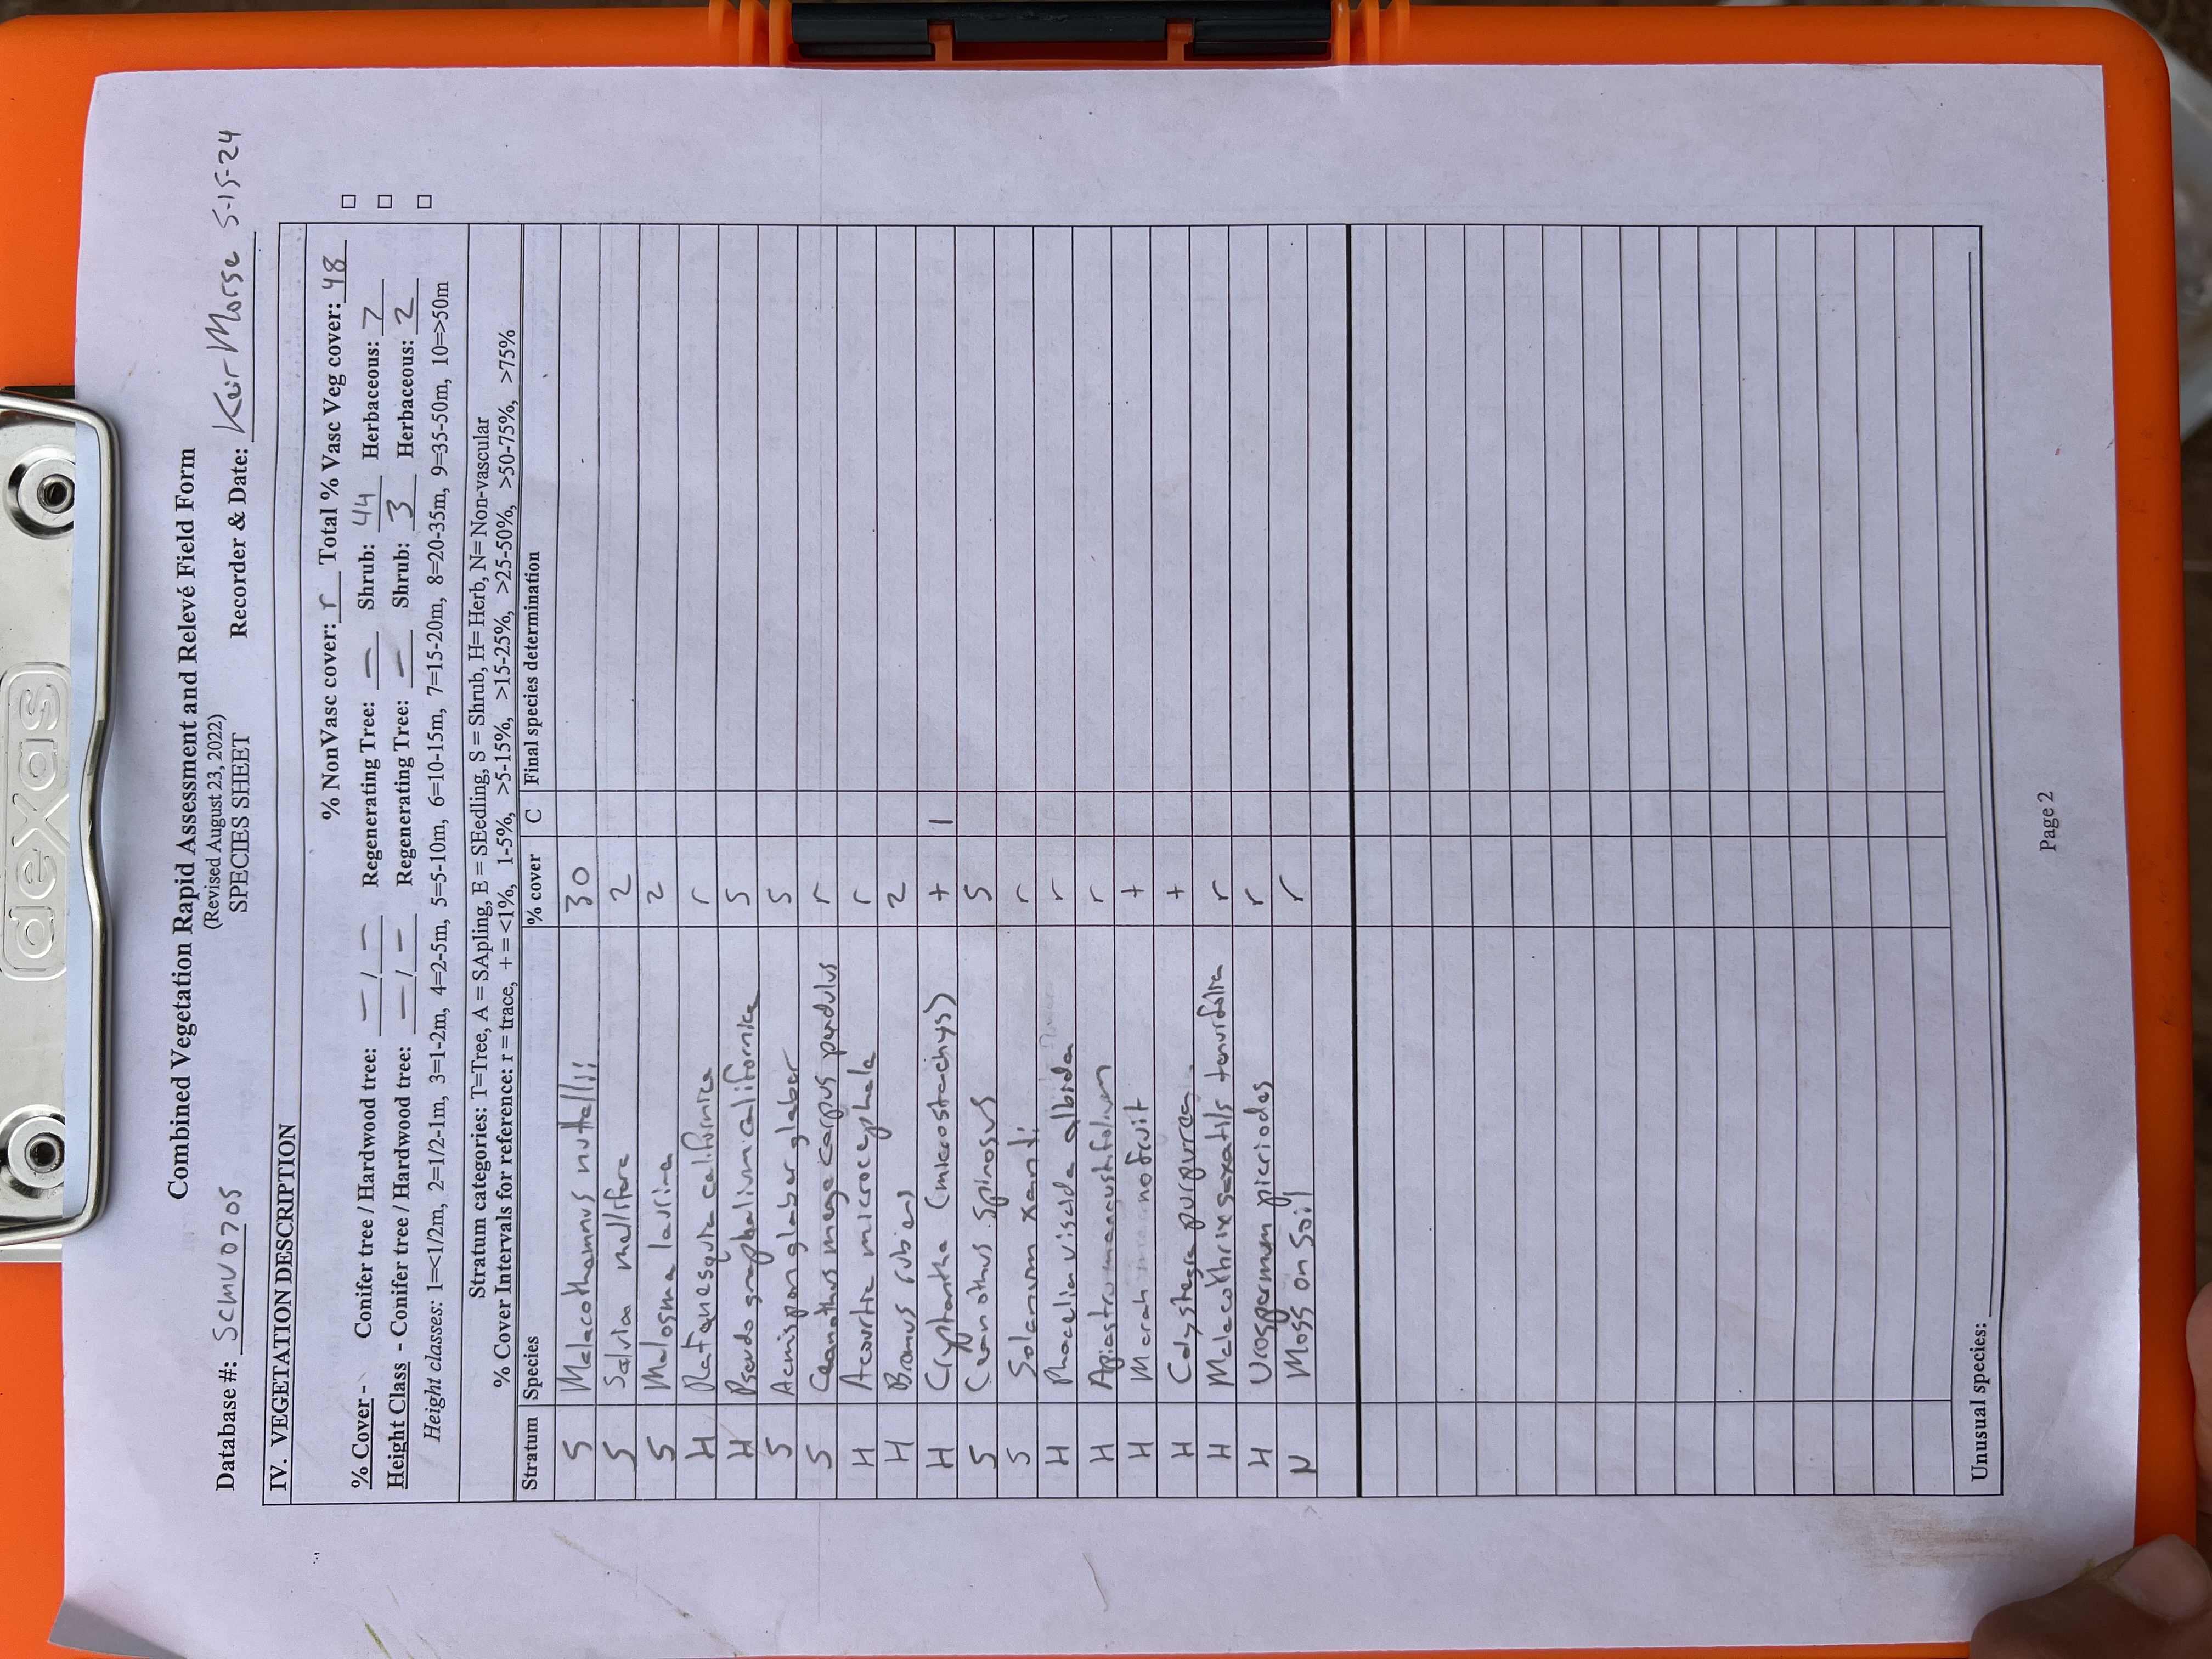 dexas
Combined Vegetation Rapid Assessment and Relevé Field Form
(Revised August 23, 2022)
SPECIES SHEET
Database #: SCMU0705 Recorder & Date: Keir Morse 5-15-24
IV. VEGETATION DESCRIPTION
% NonVasc cover: r Total % Vasc Veg cover: 48
% Cover - Conifer tree / Hardwood tree: — / — Regenerating Tree: — Shrub: 44 Herbaceous: 7
Height Class - Conifer tree / Hardwood tree: — / — Regenerating Tree: — Shrub: 3 Herbaceous: 2
Height classes: 1=<1/2m, 2=1/2-1m, 3=1-2m, 4=2-5m, 5=5-10m, 6=10-15m, 7=15-20m, 8=20-35m, 9=35-50m, 10=>50m
Stratum categories: T=Tree, A = SApling, E = SEedling, S = Shrub, H= Herb, N= Non-vascular
% Cover Intervals for reference: r = trace, + = <1%, 1-5%, >5-15%, >15-25%, >25-50%, >50-75%, >75%
Stratum Species % cover C Final species determination
S Malacothamnus nuttallii 30
S Salvia mellifera 2
S Malosma laurina 2
H Rafquesquia californica r
H Pseudognaphalium californica 5
S Acmispon glaber glaber 5
S Ceanothus megacarpus pendulus r
H Acourtia microcephala r
H Bromus rubens 2
H Cryptantha (microstachys) + 1
S Ceanothus spinosus 5
S Solanum xanti r
H Phacelia viscida albida r
H Apiastrum angustifolium r
H Marah no fruit +
H Calystegia purpurea +
H Malacothrix saxatilis tenuifolia r
H Urospermum picriodes r
N Moss on soil r
Unusual species:
Page 2